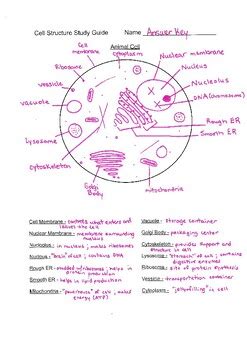 Cell Structure Study Guide Name Answer Key
Animal Cell
Cell membrane
cytoplasm
Nuclear membrane
Ribosome
Nucleus
vesicle
Nucleolus
DNA (chromosome)
vacuole
Rough ER
Smooth ER
Lysosome
Cytoskeleton
Golgi Body
mitochondria
Cell Membrane - controls what enters and leaves the cell
Nuclear Membrane - membrane surrounding nucleus
Nucleolus - in nucleus; makes ribosomes
Nucleus - "brain" of cell; contains DNA
Rough ER - studded w/ribosomes; helps in protein production
Smooth ER - helps in lipid production
Mitochondria - "powerhouse" of cell; makes energy (ATP)
Vacuole - storage container
Golgi Body - packaging center
Cytoskeleton - provides support and structure in cell
Lysosome - "stomach" of cell; contains digestive enzymes
Ribosome - site of protein synthesis
Vesicle - transportation container
Cytoplasm - "jelly filling" in cell